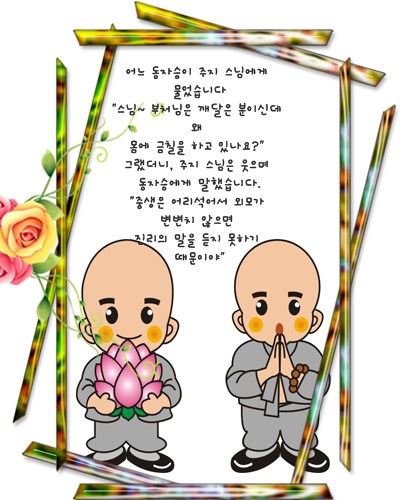 어느 동자승이 주지 스님에게
물었습니다
"스님~ 부처님은 깨달은 분이신데
왜
몸에 금칠을 하고 있나요?"
그랬더니, 주지 스님은 웃으며
동자승에게 말했습니다.
"중생은 어리석어서 외모가
변변치 않으면
진리의 말을 듣지 못하기
때문이야"